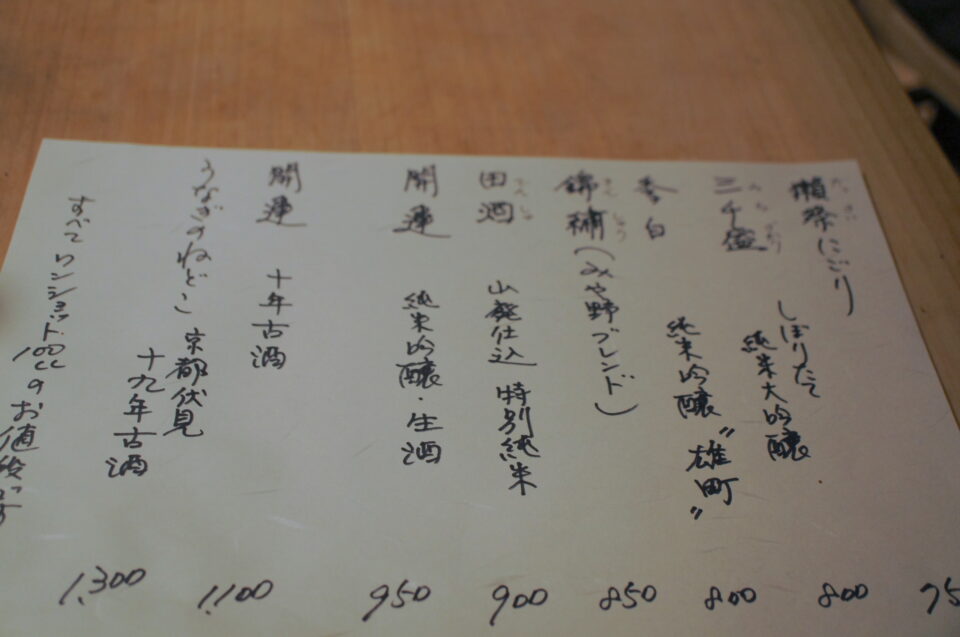 獺祭にごり
だっさい
75
三千盛 しぼりたて
みちさかり
純米大吟醸
800
李白 純米吟醸
"雄町"
800
錦繍(みや野ブレンド)
きんしゅう
850
田酒 山廃仕込 特別純米
でんしゅ
900
開運 純米吟醸・生酒
950
開運 十年古酒
1,100
うなぎのねどこ 京都伏見
十九年古酒
1,300
すべてワンショット100ccのお値段です